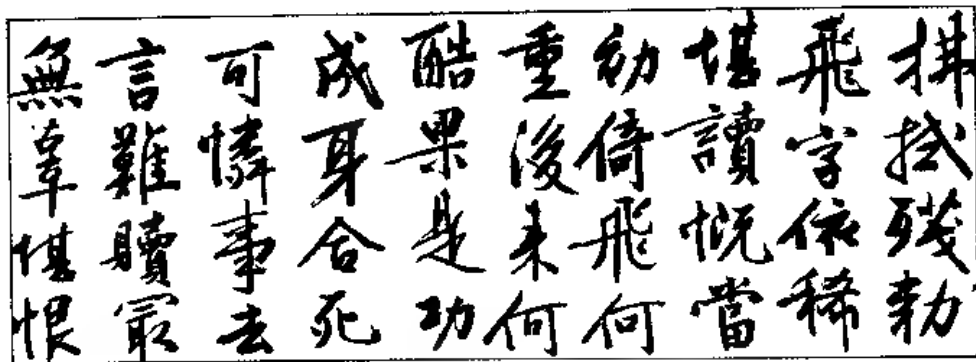 拂拭殘勅
飛字依稀
堪讀慨當
初倚飛何
重後來何
酷果是功
成身合死
可憐事去
言難贖最
無辜堪恨